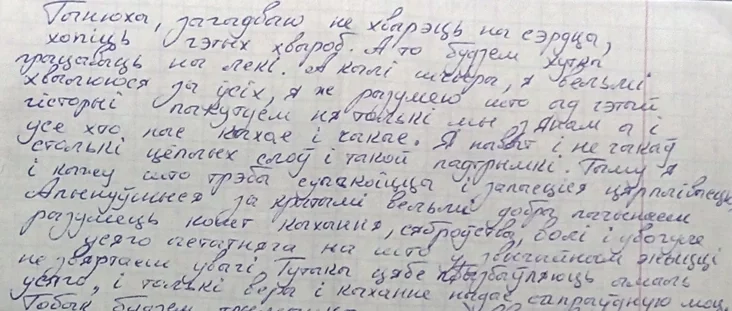 Танюха, загадваю не хварэць на сэрдца,
хопіць гэтых хвароб. А то будзем хутка
працаваць на лекі. А калі шчыра, я вельмі
хвалююся за ўсіх, я ж разумею што ад гэтай
гісторыі пакутуем ня толькі мы з Янам а і
усе хто нас кахае і чакае. Я нават і не чакаў
столькі цёплых слоў і такой падтрымкі. Таму я
і кажу што трэба супакоіцца і запасціся цярплівасцю
Апынуўшыся за кратамі вельмі добра пачынаем
разумець кошт кахання, сяброўства, волі і увогуле
усяго астатняга на што у звычайным жыцці
не звяртаем увагі. Тутака цябе пазбаўляюць амаль
усяго, і толькі вера і каханне надае сапраўдную моц.
будзем